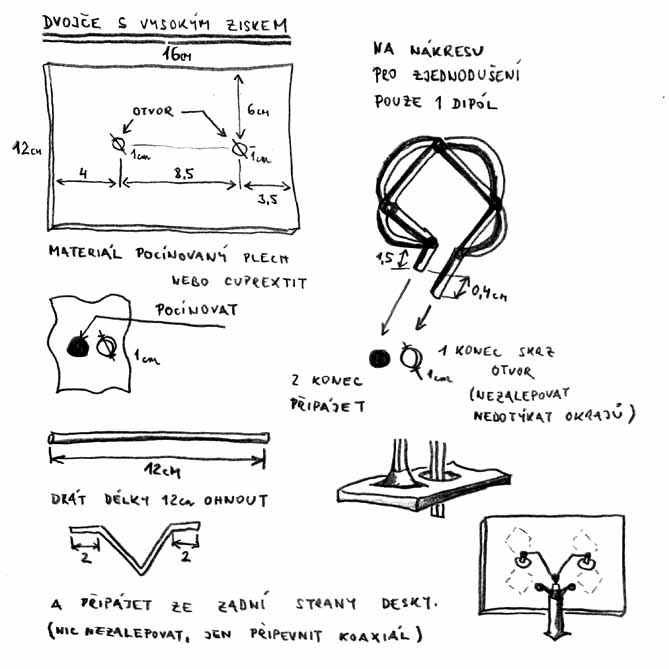 DVOJČE S VYSOKÝM ZISKEM
16cm
12cm
6cm
OTVOR
1cm
1cm
4
8,5
3,5
MATERIÁL POCÍNOVANÝ PLECH
NEBO CUPREXTIT
POCÍNOVAT
1cm
12cm
DRÁT DÉLKY 12cm OHNOUT
2
2
A PŘIPÁJET ZE ZADNÍ STRANY DESKY.
(NIC NEZALEPOVAT, JEN PŘIPEVNIT KOAXIÁL)
NA NÁKRESU
PRO ZJEDNODUŠENÍ
POUZE 1 DIPÓL
1,5
0,4cm
1cm
1 KONEC SKRZ
OTVOR
(NEZALEPOVAT
NEDOTÝKAT OKRAJŮ)
2 KONEC
PŘIPÁJET